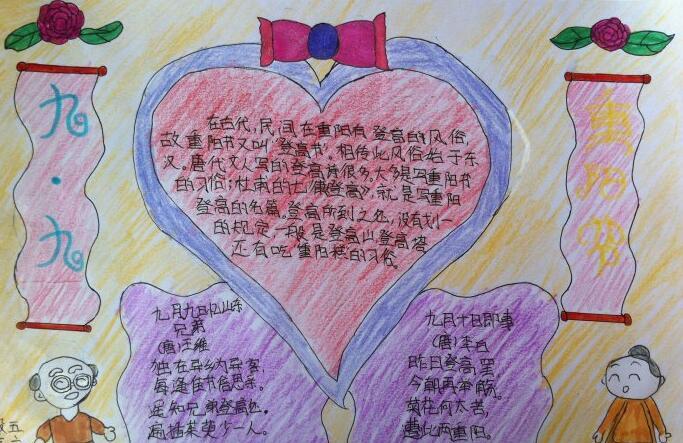 九·九
重阳节
在古代,民间在重阳有登高的风俗,
故重阳节又叫“登高节”。相传此风俗始于东
汉。唐代文人写的登高诗很多,大多是写重阳节
的习俗;杜甫的七律《登高》,就是写重阳
登高的名篇。登高所到之处,没有划一
的规定,一般是登高山、登高塔
还有吃“重阳糕”的习俗。
九月九日忆山东
兄弟
(唐)王维
独在异乡为异客,
每逢佳节倍思亲。
遥知兄弟登高处,
遍插茱萸少一人。
九月十日即事
(唐)李白
昨日登高罢,
今朝再举觞。
菊花何太苦,
遭此两重阳。
五